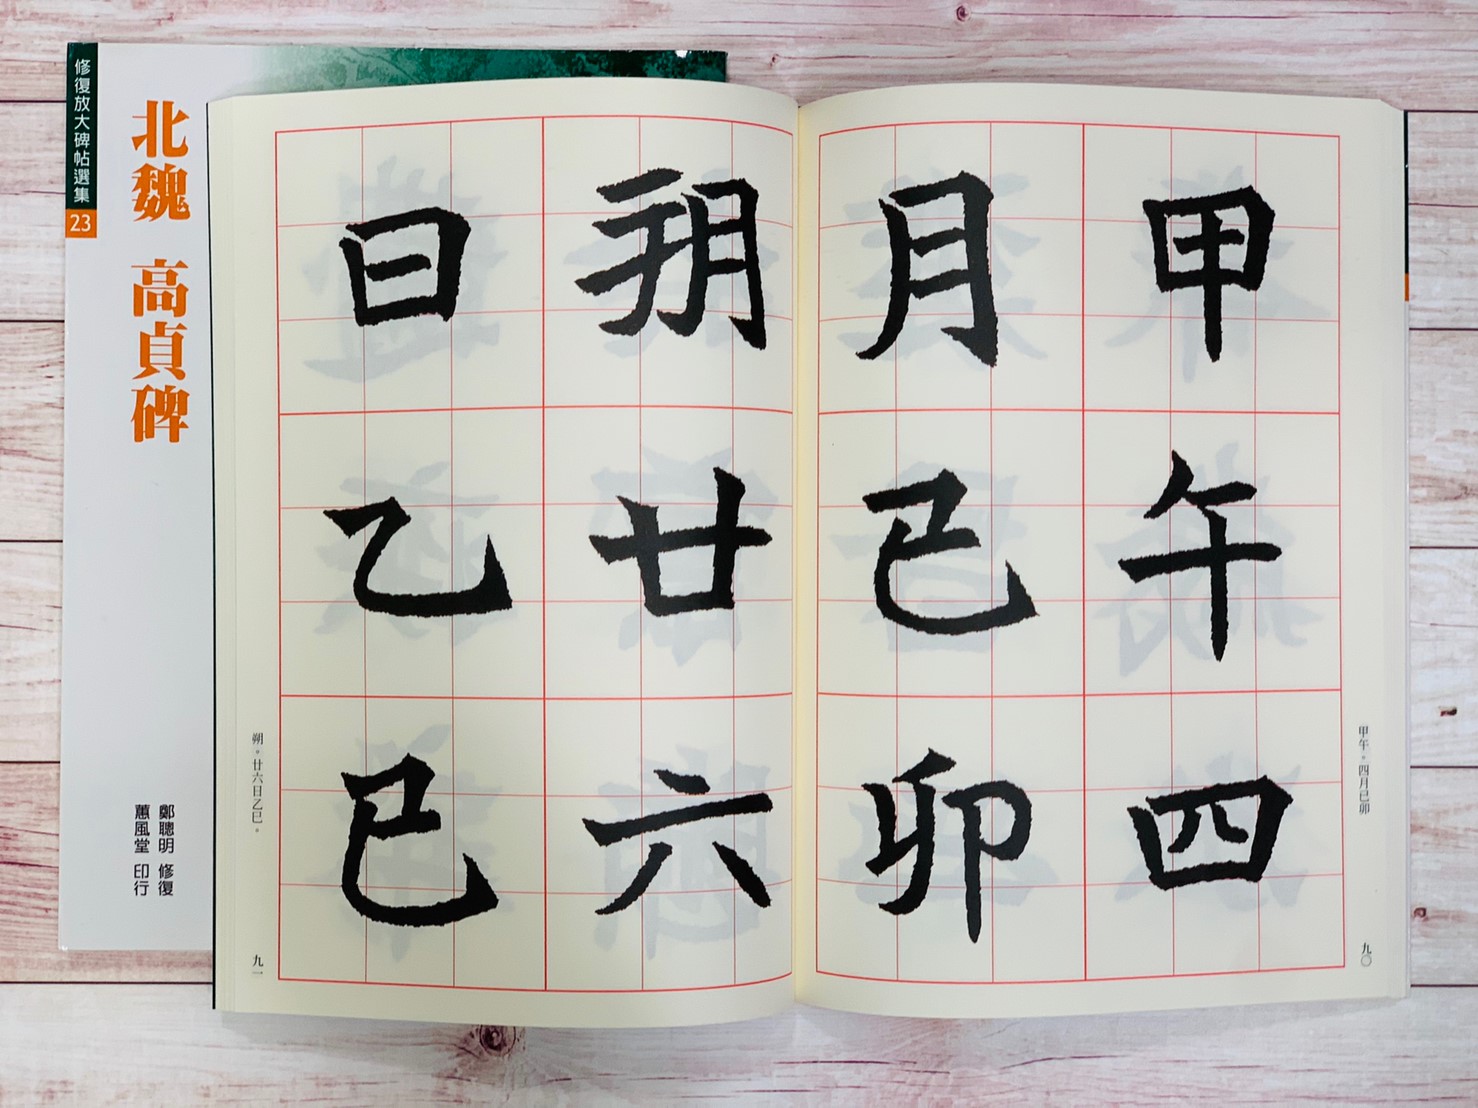 修復放大碑帖選集
23
北魏 高貞碑
鄭聰明 修復
蕙風堂 印行
甲午四
月己卯
朔廿六
日乙巳
甲午。四月己卯
九〇
朔。廿六日乙巳。
九一